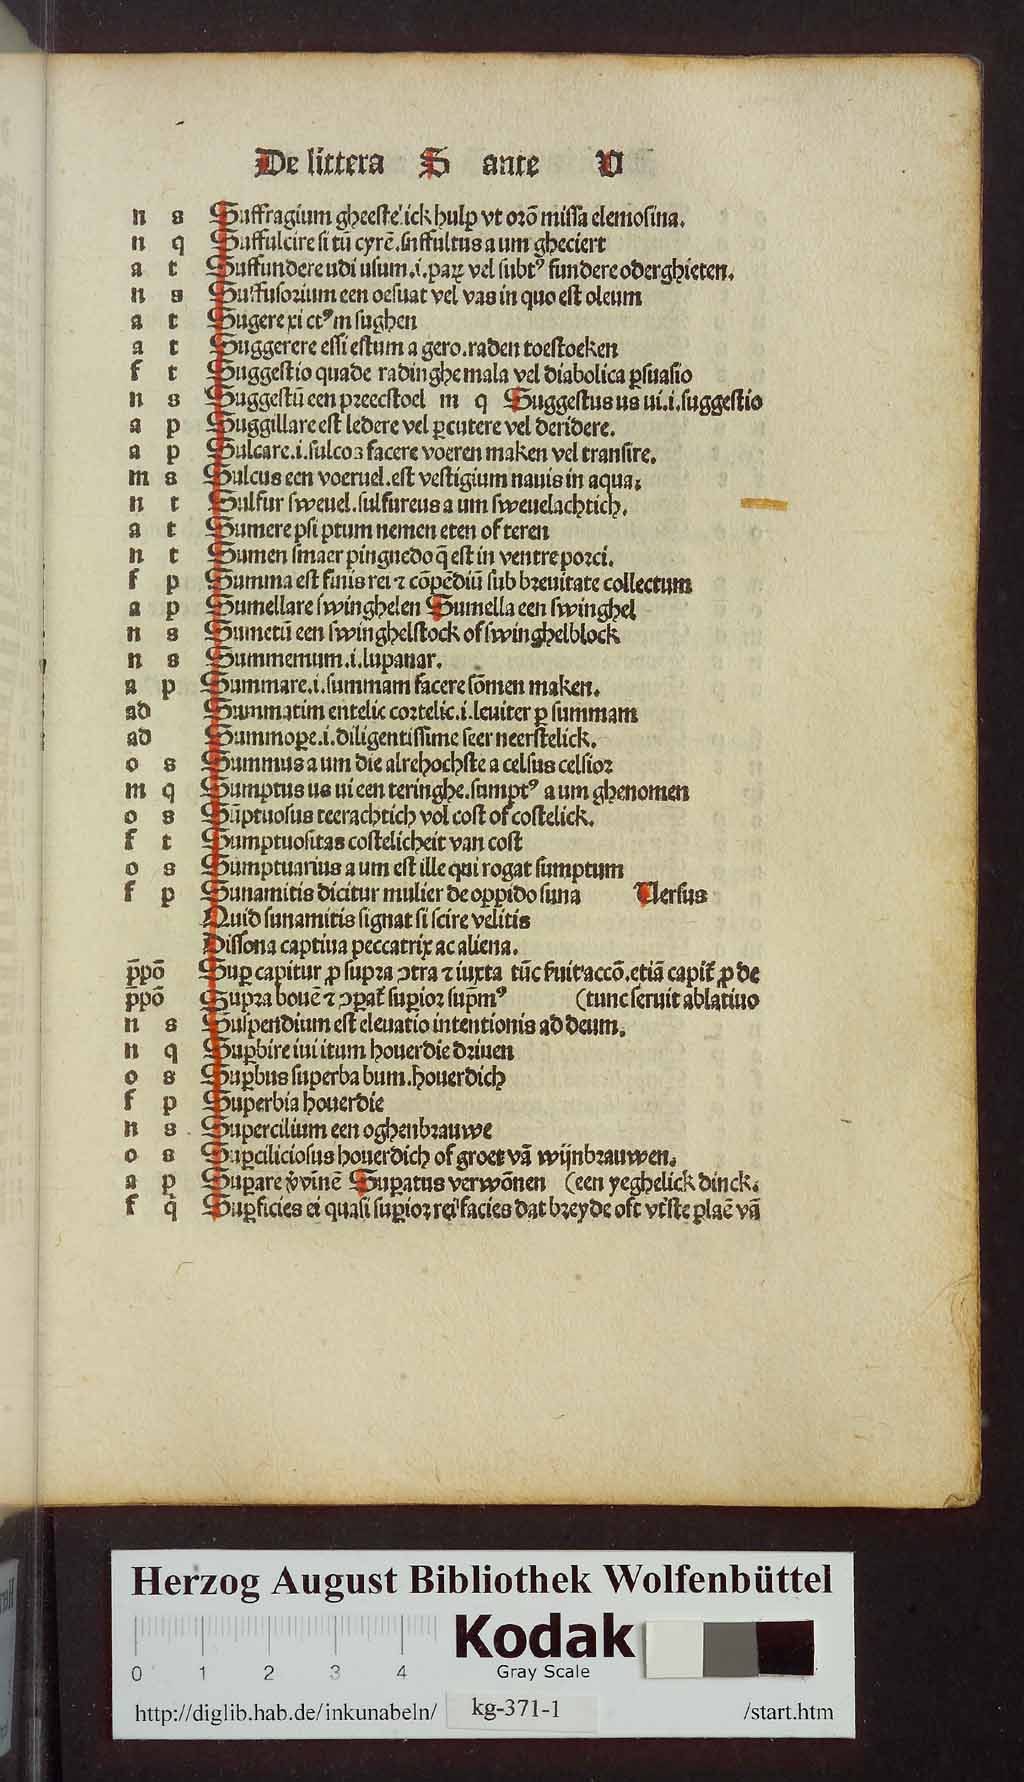 De littera S ante U
n s Suffragium gheeste'ick hulp vt orō missa elemosina.
n q Suffulcire si tū cyrē. suffultus a um gheciert
a t Suffundere udi usum .i. paꝝ vel subtꝰ fundere oderghieten.
n s Suffusorium een oesuat vel vas in quo est oleum
a t Sugere xi ctꝰm sughen
a t Suggerere essi estum a gero. raden toestoeken
f t Suggestio quade radinghe mala vel diabolica ꝑsuasio
n s Suggestū een preecstoel m q Suggestus us ui .i. suggestio
a p Suggillare est ledere vel ꝑcutere vel deridere.
a p Sulcare .i. sulcoꝫ facere voeren maken vel transire.
m s Sulcus een voeruel. est vestigium nauis in aqua;
n t Sulfur sweuel. sulfureus a um sweuelachtich.
a t Sumere psi ptum nemen eten of teren
n t Sumen smaer pinguedo q̄ est in ventre porci.
f p Summa est finis rei ⁊ cōpēdiū sub breuitate collectum
a p Sumellare swinghelen Sumella een swinghel
n s Sumetū een swinghelstock of swinghelblock
n s Summemum .i. lupanar.
a p Summare .i. summam facere sōmen maken.
ad Summatim entelic cortelic .i. leuiter ꝑ summam
ad Summoꝑe .i. diligentissime seer neerstelick.
o s Summus a um die alrehochste a celsus celsior
m q Sumptus us ui een teringhe. sumptꝰ a um ghenomen
o s Sūptuosus teerachtich vol cost of costelick.
f t Sumptuositas costelicheit van cost
o s Sumptuarius a um est ille qui rogat sumptum
f p Sunamitis dicitur mulier de oppido suna Versus
Quid sunamitis signat si scire velitis
Dissona captiua peccatrix ac aliena.
p̄pō Suꝑ capitur ꝓ supra ↄtra ⁊ iuxta tūc fuit accō. etiā capit̄ ꝓ de
p̄pō Supra bouē ⁊ ↄꝑat̄ suꝑior sup̄mꝰ (tunc seruit ablatiuo
n s Suspendium est eleuatio intentionis ad deum.
n q Suꝑbire iui itum houerdie driuen
o s Suꝑbus superba bum. houerdich
f p Superbia houerdie
n s Supercilium een oghenbrauwe
o s Suꝑciliciosus houerdich of groet vā wijnbrauwen.
a p Suꝑare v̓vīnē Suꝑatus verwōnen (een yeghelick dinck.
f q Suꝑficies ei quasi suꝑior rei facies dat breyde oft vt'ste plaē vā
Herzog August Bibliothek Wolfenbüttel
0 1 2 3 4
Kodak
Gray Scale
http://diglib.hab.de/inkunabeln/ kg-371-1 /start.htm